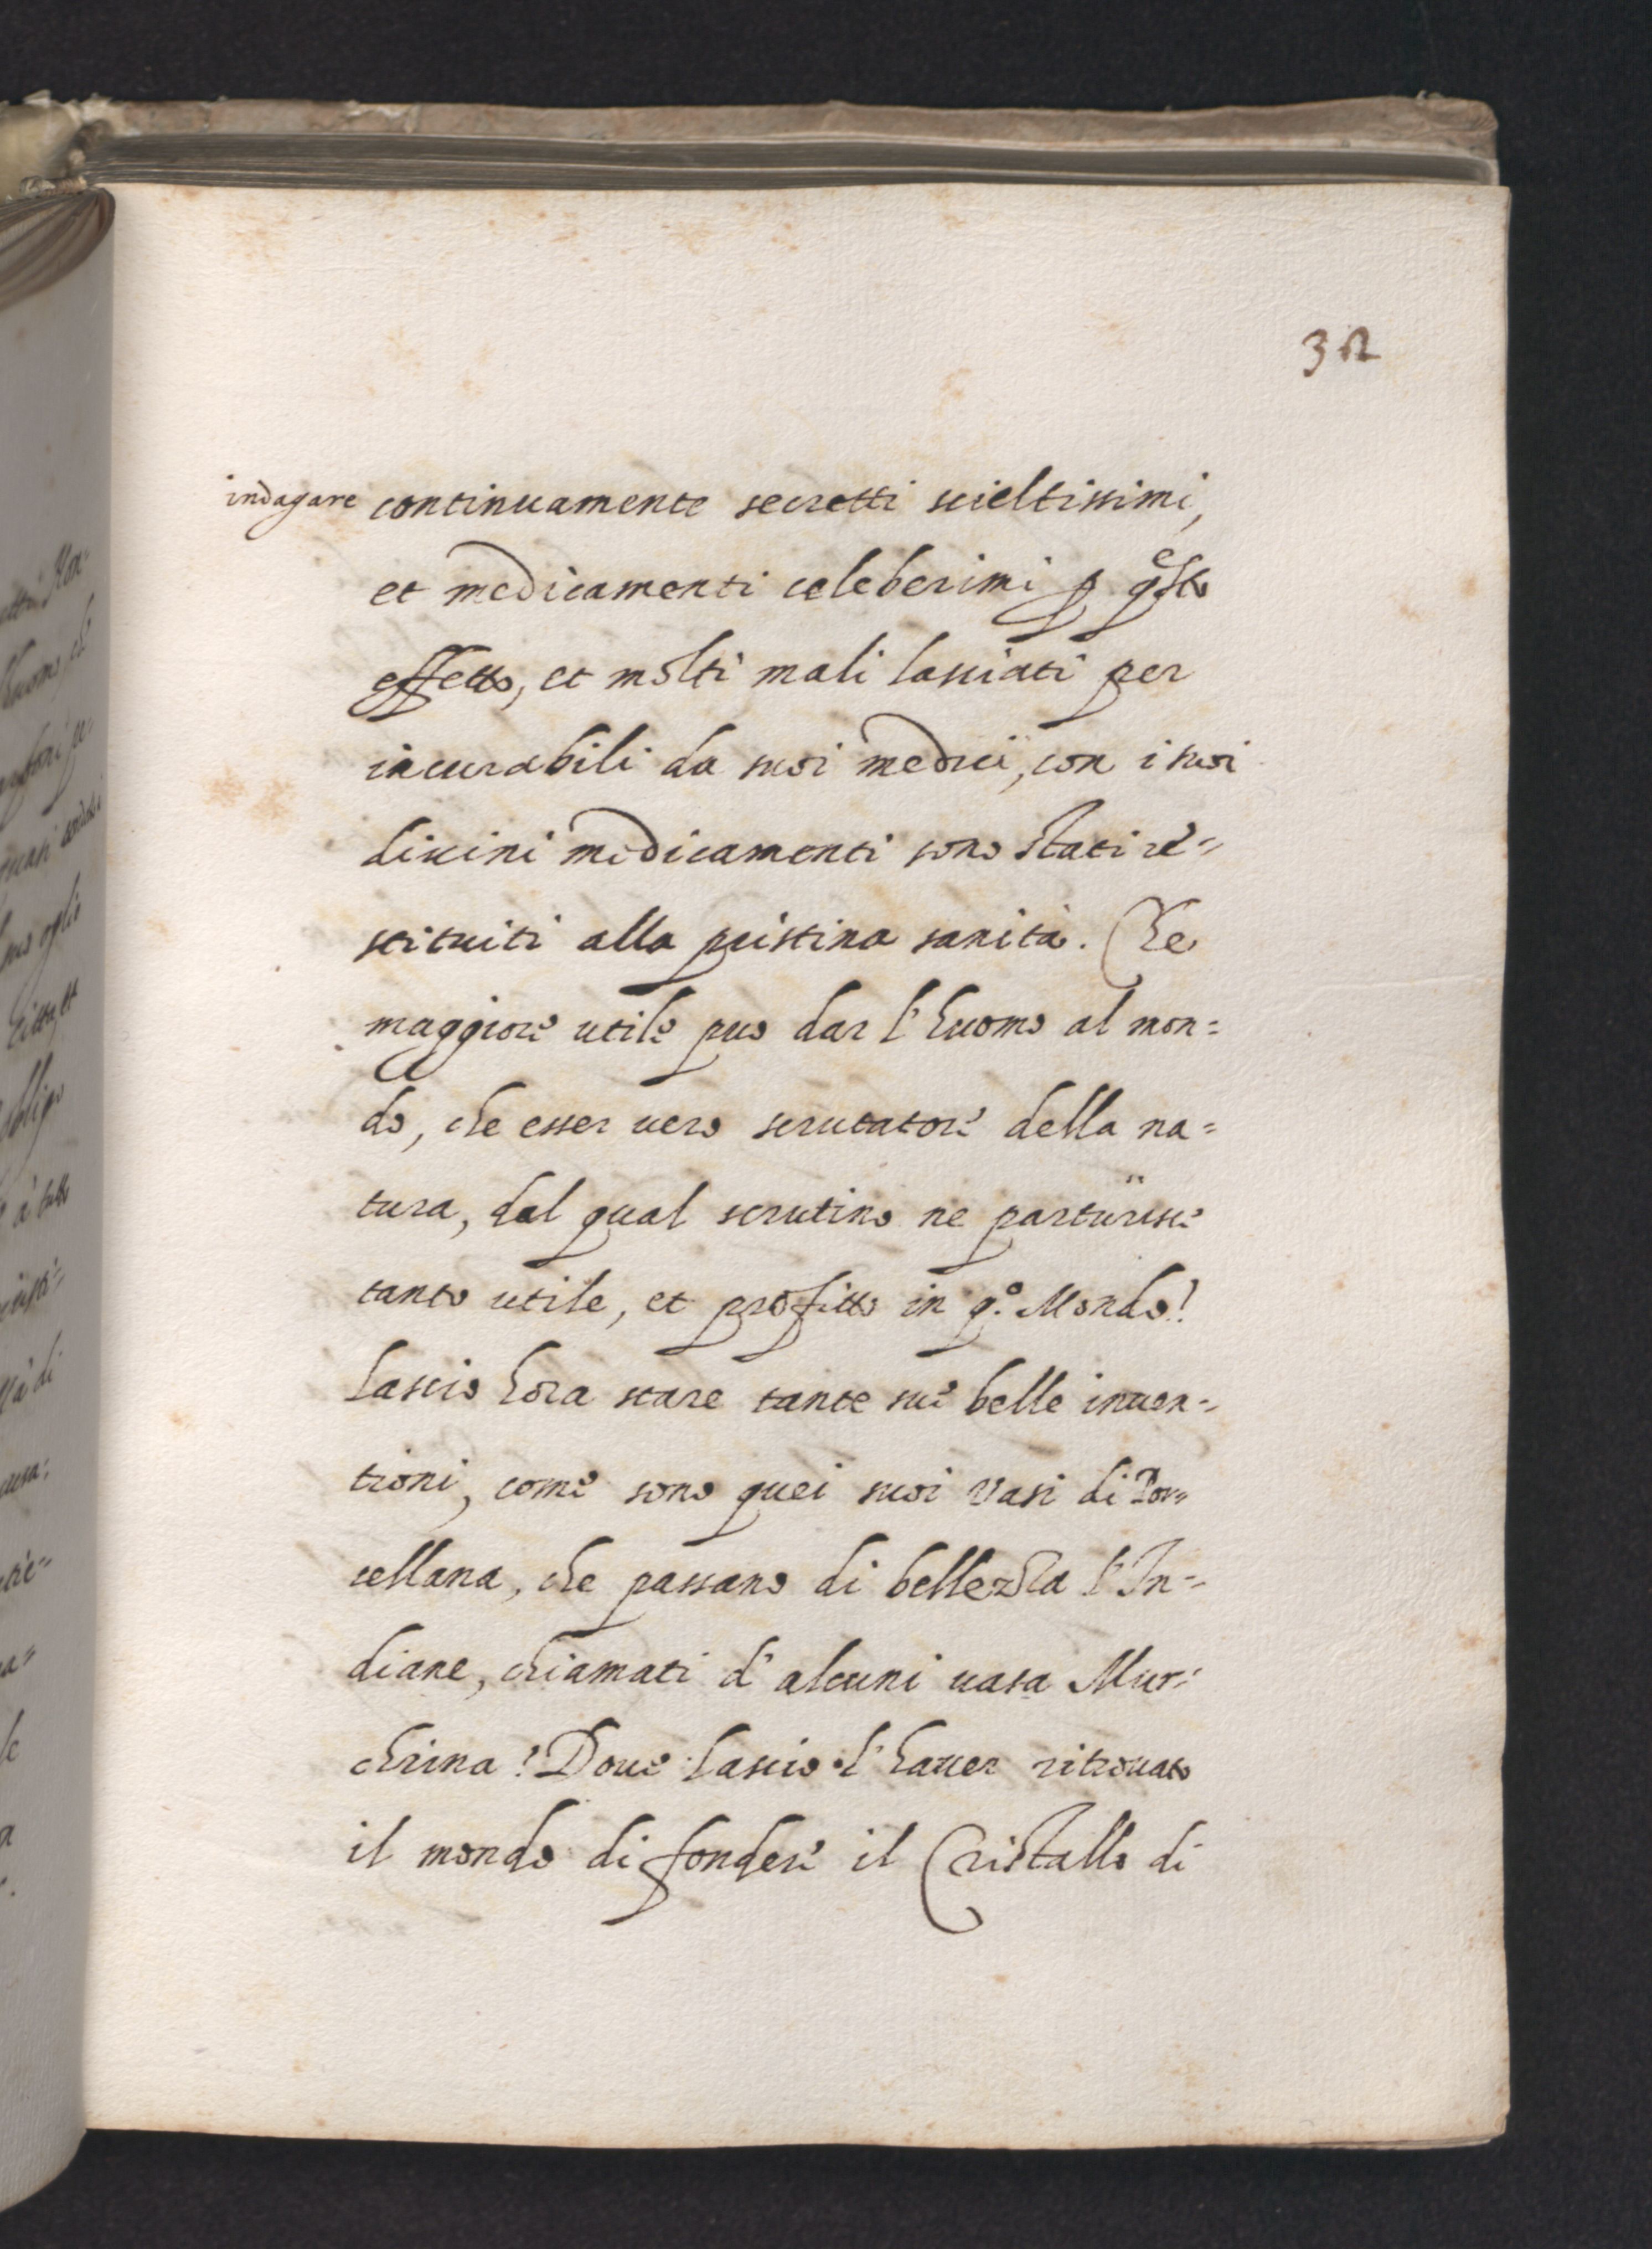 32
indagare continuamente secretti scieltissimi,
et medicamenti celeberimi p q̊sto
effetto, et molti mali lasciati per
incurabili da suoi medici, con i suoi
divini medicamenti sono stati re=
stituiti alla pristina sanità. Che
maggiore utile puo dar l'huomo al mon=
do, che esser uero scrutatore della na=
tura, dal qual scrutino ne parturisce
tanto utile, et profitto in q.º Mondo!
Lascio hora stare tante sue belle inuen=
tioni, come sono quei suoi vasi di Por=
cellana, che passano di bellezza l'In=
diane, chiamati d'alcuni uasa Mur=
chrina! Doue lascio l'hauer ritrouato
il mondo di fondere il Cristallo di